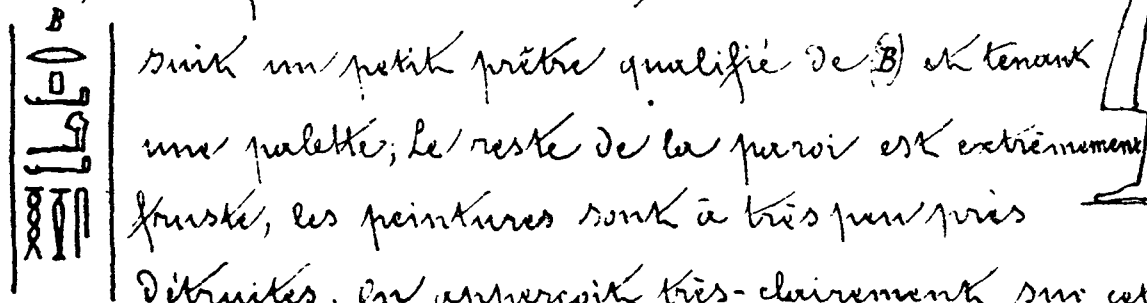 B
suit un petit prêtre qualifié de B) et tenant
une palette; Le reste de la paroi est extrêmement
fruste, les peintures sont à très peu près
détruites. On apperçoit très-clairement sur